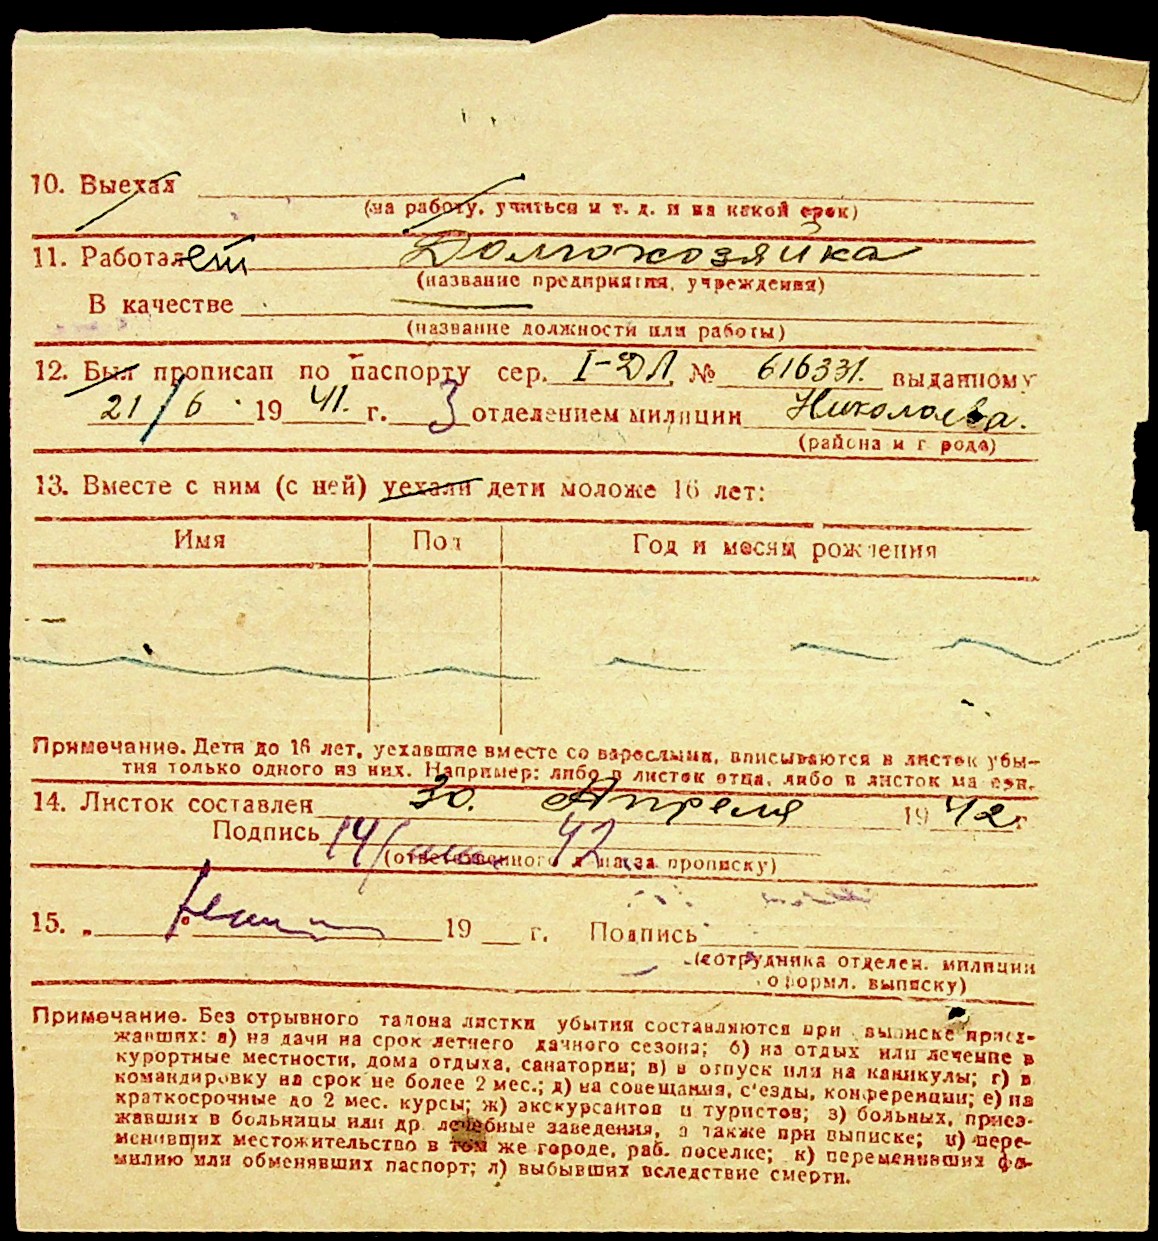 10. Выехал
(на работу, учиться и т. д. и на какой срок)
11. Работает Домохозяйка
(название предприятия, учреждения)
В качестве
(название должности или работы)
12. Был прописан по паспорту сер. I-ДЛ № 616331. выданному
21/6 · 19 41. г. 3 отделением милиции Николаева.
(района и города)
13. Вместе с ним (с ней) уехали дети моложе 16 лет:
Имя Пол Год и месяц рождения
Примечание. Дети до 16 лет, уехавшие вместе со взрослыми, вписываются в листок убы-
тия только одного из них. Например: либо в листок отца, либо в листок матери.
14. Листок составлен 30. Апреля 1942 г
Подпись
(ответственного за прописку)
15. „ 19 г. Подпись
(сотрудника отделен. милиции
оформл. выписку)
Примечание. Без отрывного талона листки убытия составляются при выписке приез-
жавших: а) на дачи на срок летнего дачного сезона; б) на отдых или лечение в
курортные местности, дома отдыха, санатории; в) в отпуск или на каникулы; г) в
командировку на срок не более 2 мес.; д) на совещания, с'езды, конференции; е) на
краткосрочные до 2 мес. курсы; ж) экскурсантов и туристов; з) больных, приез-
жавших в больницы или др. лечебные заведения, а также при выписке; и) пере-
менивших местожительство в том же городе, раб. поселке; к) переменивших фа-
милию или обменявших паспорт; л) выбывших вследствие смерти.